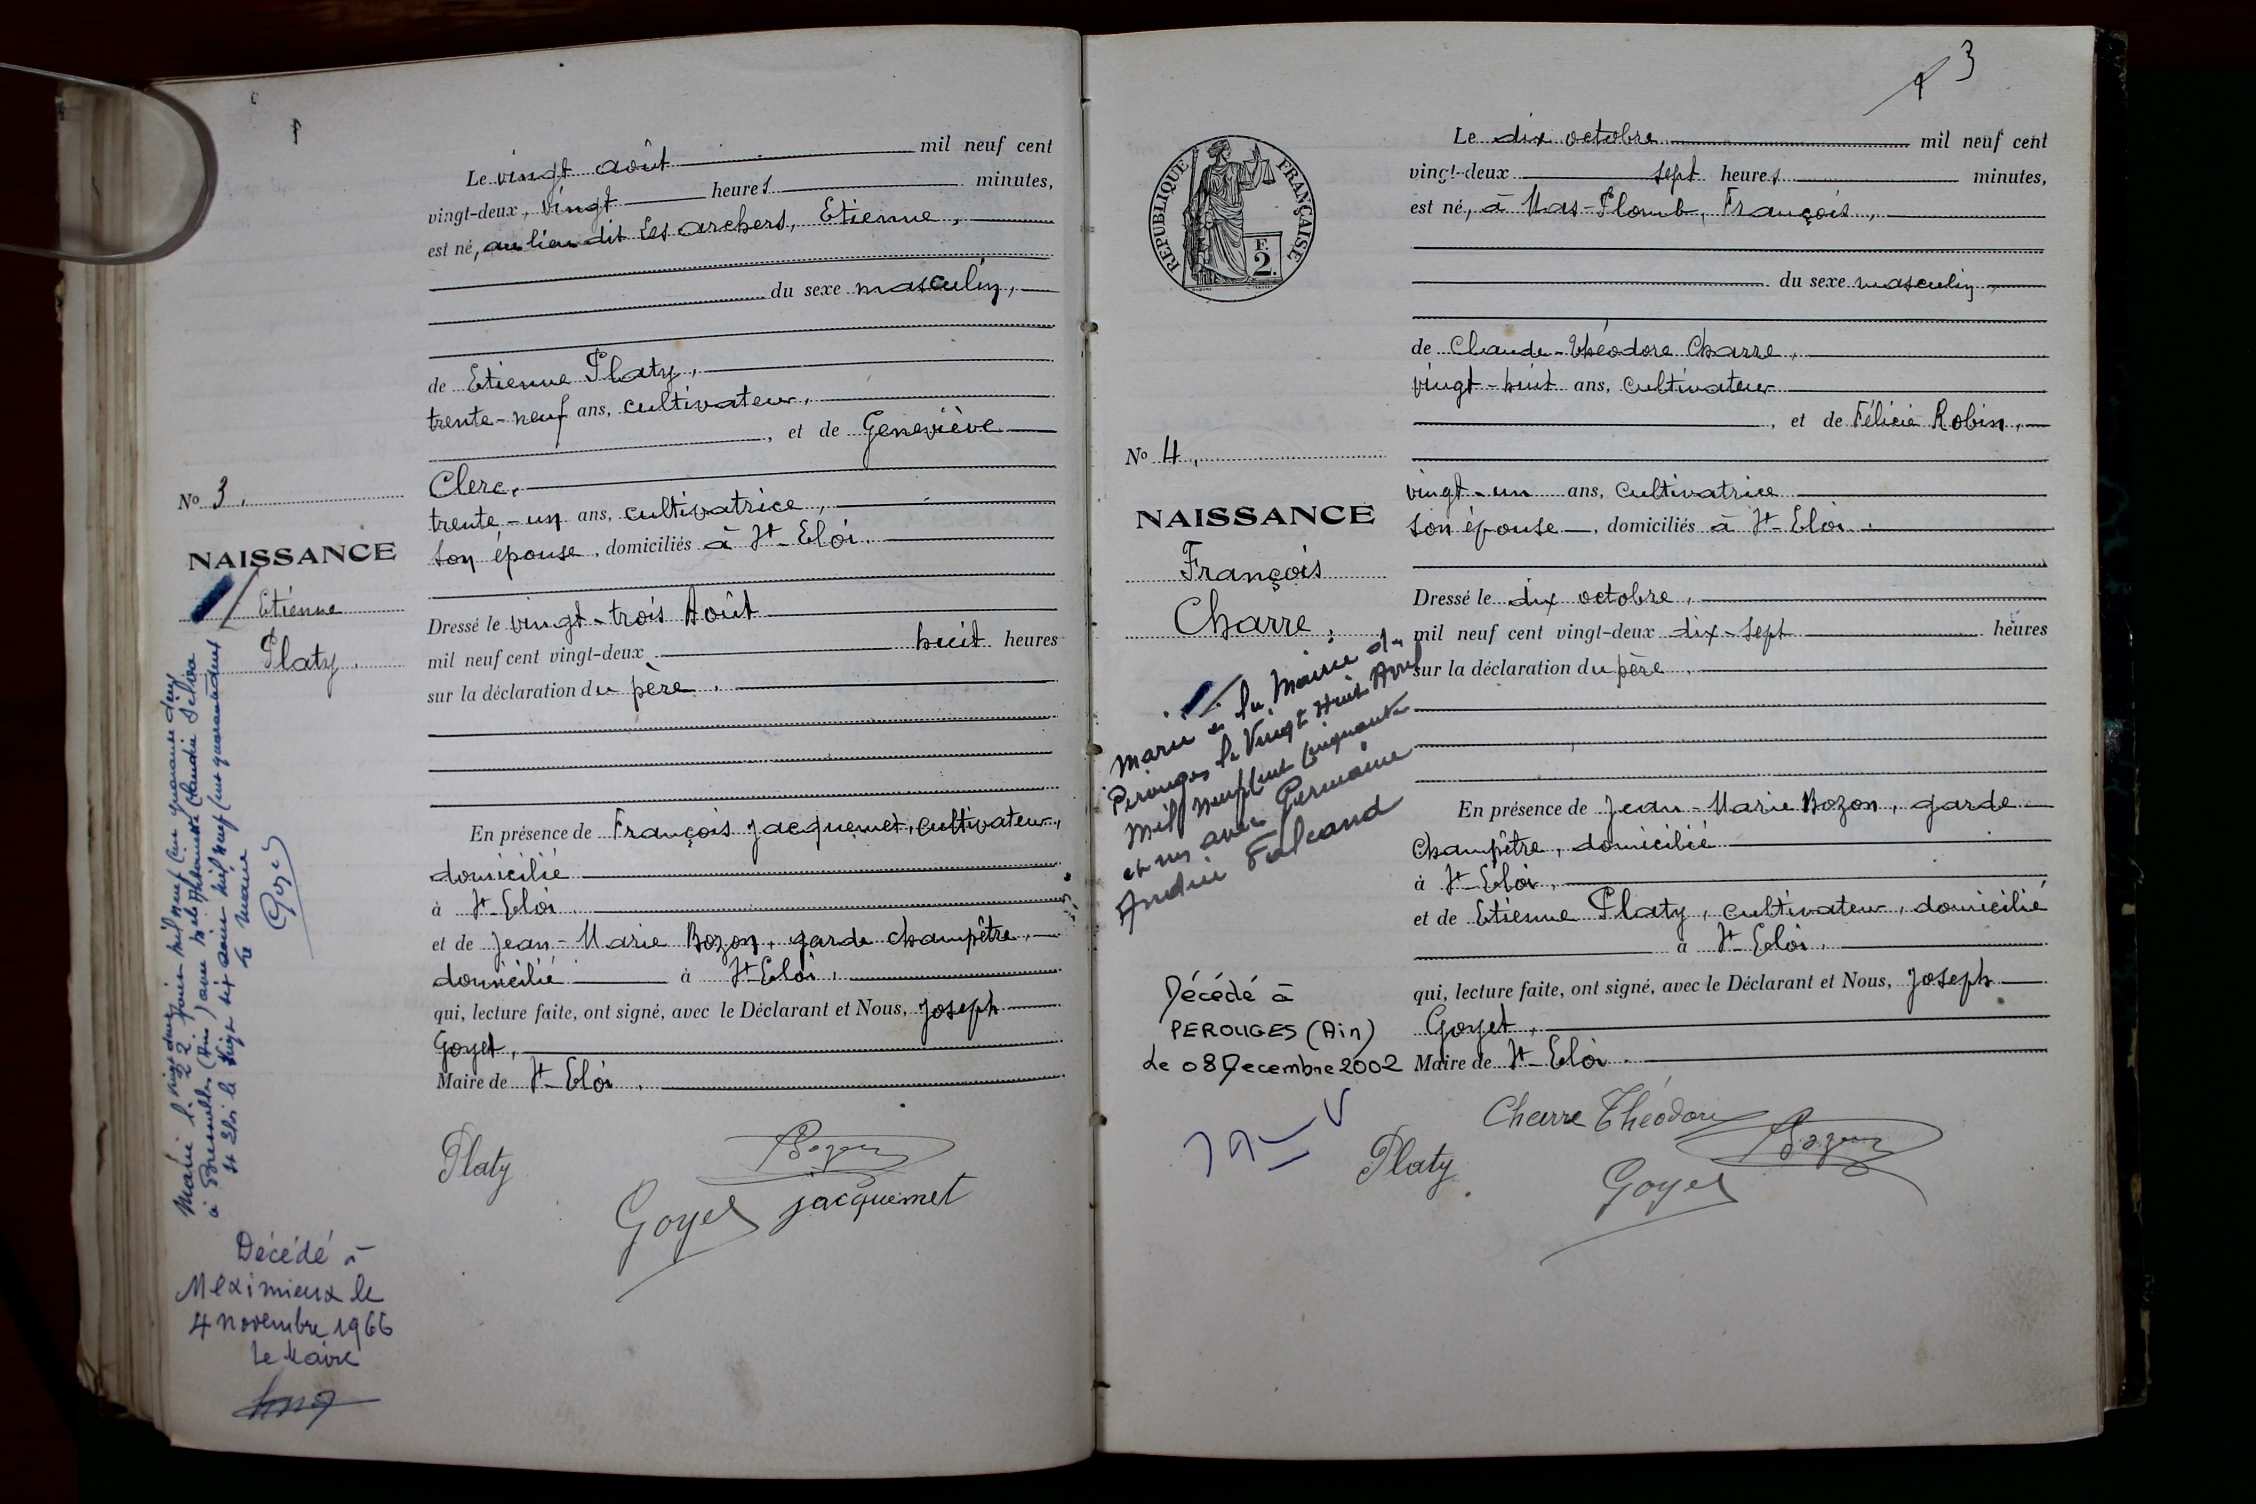 Le vingt août mil neuf cent
vingt-deux, vingt heures minutes,
est né, au lieu dit Les archers, Etienne,
du sexe masculin,
de Etienne Platy,
trente-neuf ans, cultivateur,
, et de Geneviève
Clerc,
trente-un ans, cultivatrice,
son épouse, domiciliés à St-Eloi.
Dressé le vingt-trois Août
mil neuf cent vingt-deux huit heures
sur la déclaration du père.
En présence de François Jacquemet, cultivateur,
domicilié
à St-Eloi.
et de Jean-Marie Bozon, garde champêtre,
domicilié à St-Eloi,
qui, lecture faite, ont signé, avec le Déclarant et Nous, Joseph
Goyet,
Maire de St-Eloi.
Platy Bozon
Goyet Jacquemet
No 3.
NAISSANCE
Etienne
Platy.
Marié le vingt deux juin mil neuf cent quarante deux
à (Ain) avec Antoinette Claudia
St Eloi le vingt six mil neuf cent quarante deux
Le Maire
Goyet
Décédé à
Meximieux le
4 novembre 1966
Le Maire
3
REPUBLIQUE FRANÇAISE
F.
2.
Le dix octobre mil neuf cent
vingt-deux sept heures minutes,
est né, à Mas-Plomb, François,
du sexe masculin
de Claude-Théodore Charre,
vingt-huit ans, cultivateur
, et de Félicie Robin,
vingt-un ans, cultivatrice
son épouse, domiciliés à St-Eloi.
Dressé le dix octobre,
mil neuf cent vingt-deux dix-sept heures
sur la déclaration du père.
En présence de Jean-Marie Bozon, garde
champêtre, domicilié
à St-Eloi,
et de Etienne Platy, cultivateur, domicilié
à St-Eloi.
qui, lecture faite, ont signé, avec le Déclarant et Nous, Joseph
Goyet,
Maire de St-Eloi.
Charre Théodore
Platy Bozon
Goyet
No 4,
NAISSANCE
François
Charre,
Marié à la Mairie de
Pérouges le Vingt Huit Avril
Mil Neuf Cent Cinquante
et un avec Germaine
Andrée Falcand
Décédé à
PEROUGES (Ain)
Le 08 Decembre 2002